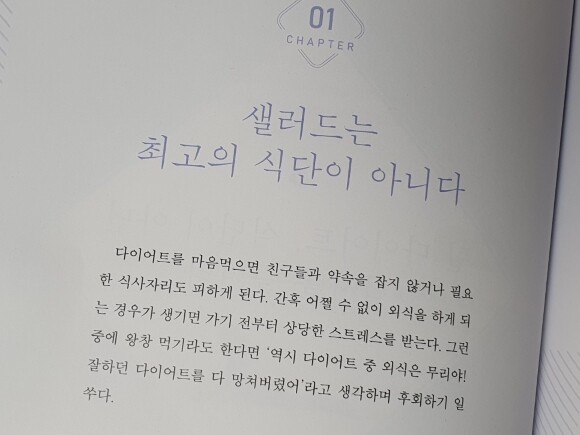 01
CHAPTER
샐러드는
최고의 식단이 아니다
다이어트를 마음먹으면 친구들과 약속을 잡지 않거나 필요
한 식사자리도 피하게 된다. 간혹 어쩔 수 없이 외식을 하게 되
는 경우가 생기면 가기 전부터 상당한 스트레스를 받는다. 그런
중에 왕창 먹기라도 한다면 ‘역시 다이어트 중 외식은 무리야!
잘하던 다이어트를 다 망쳐버렸어’라고 생각하며 후회하기 일
쑤다.